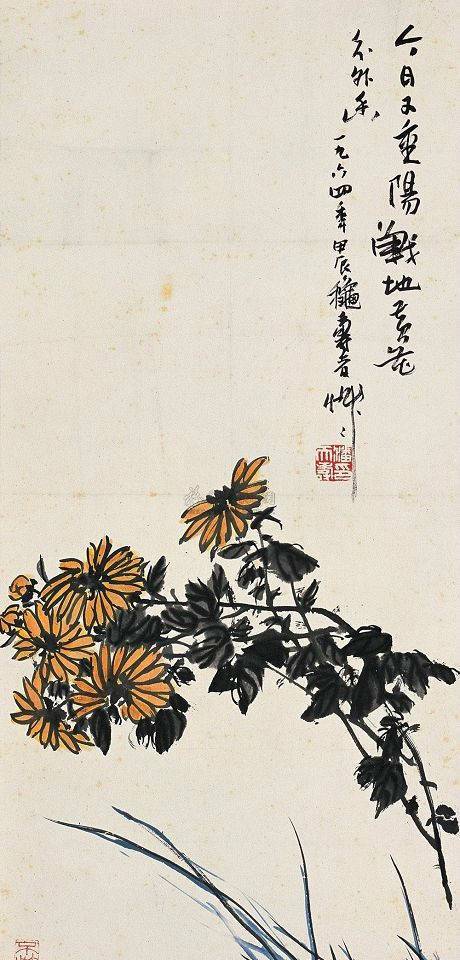 今日又重陽戰地黃花
分外香 一九六四秊甲辰龝壽者
潘天壽印